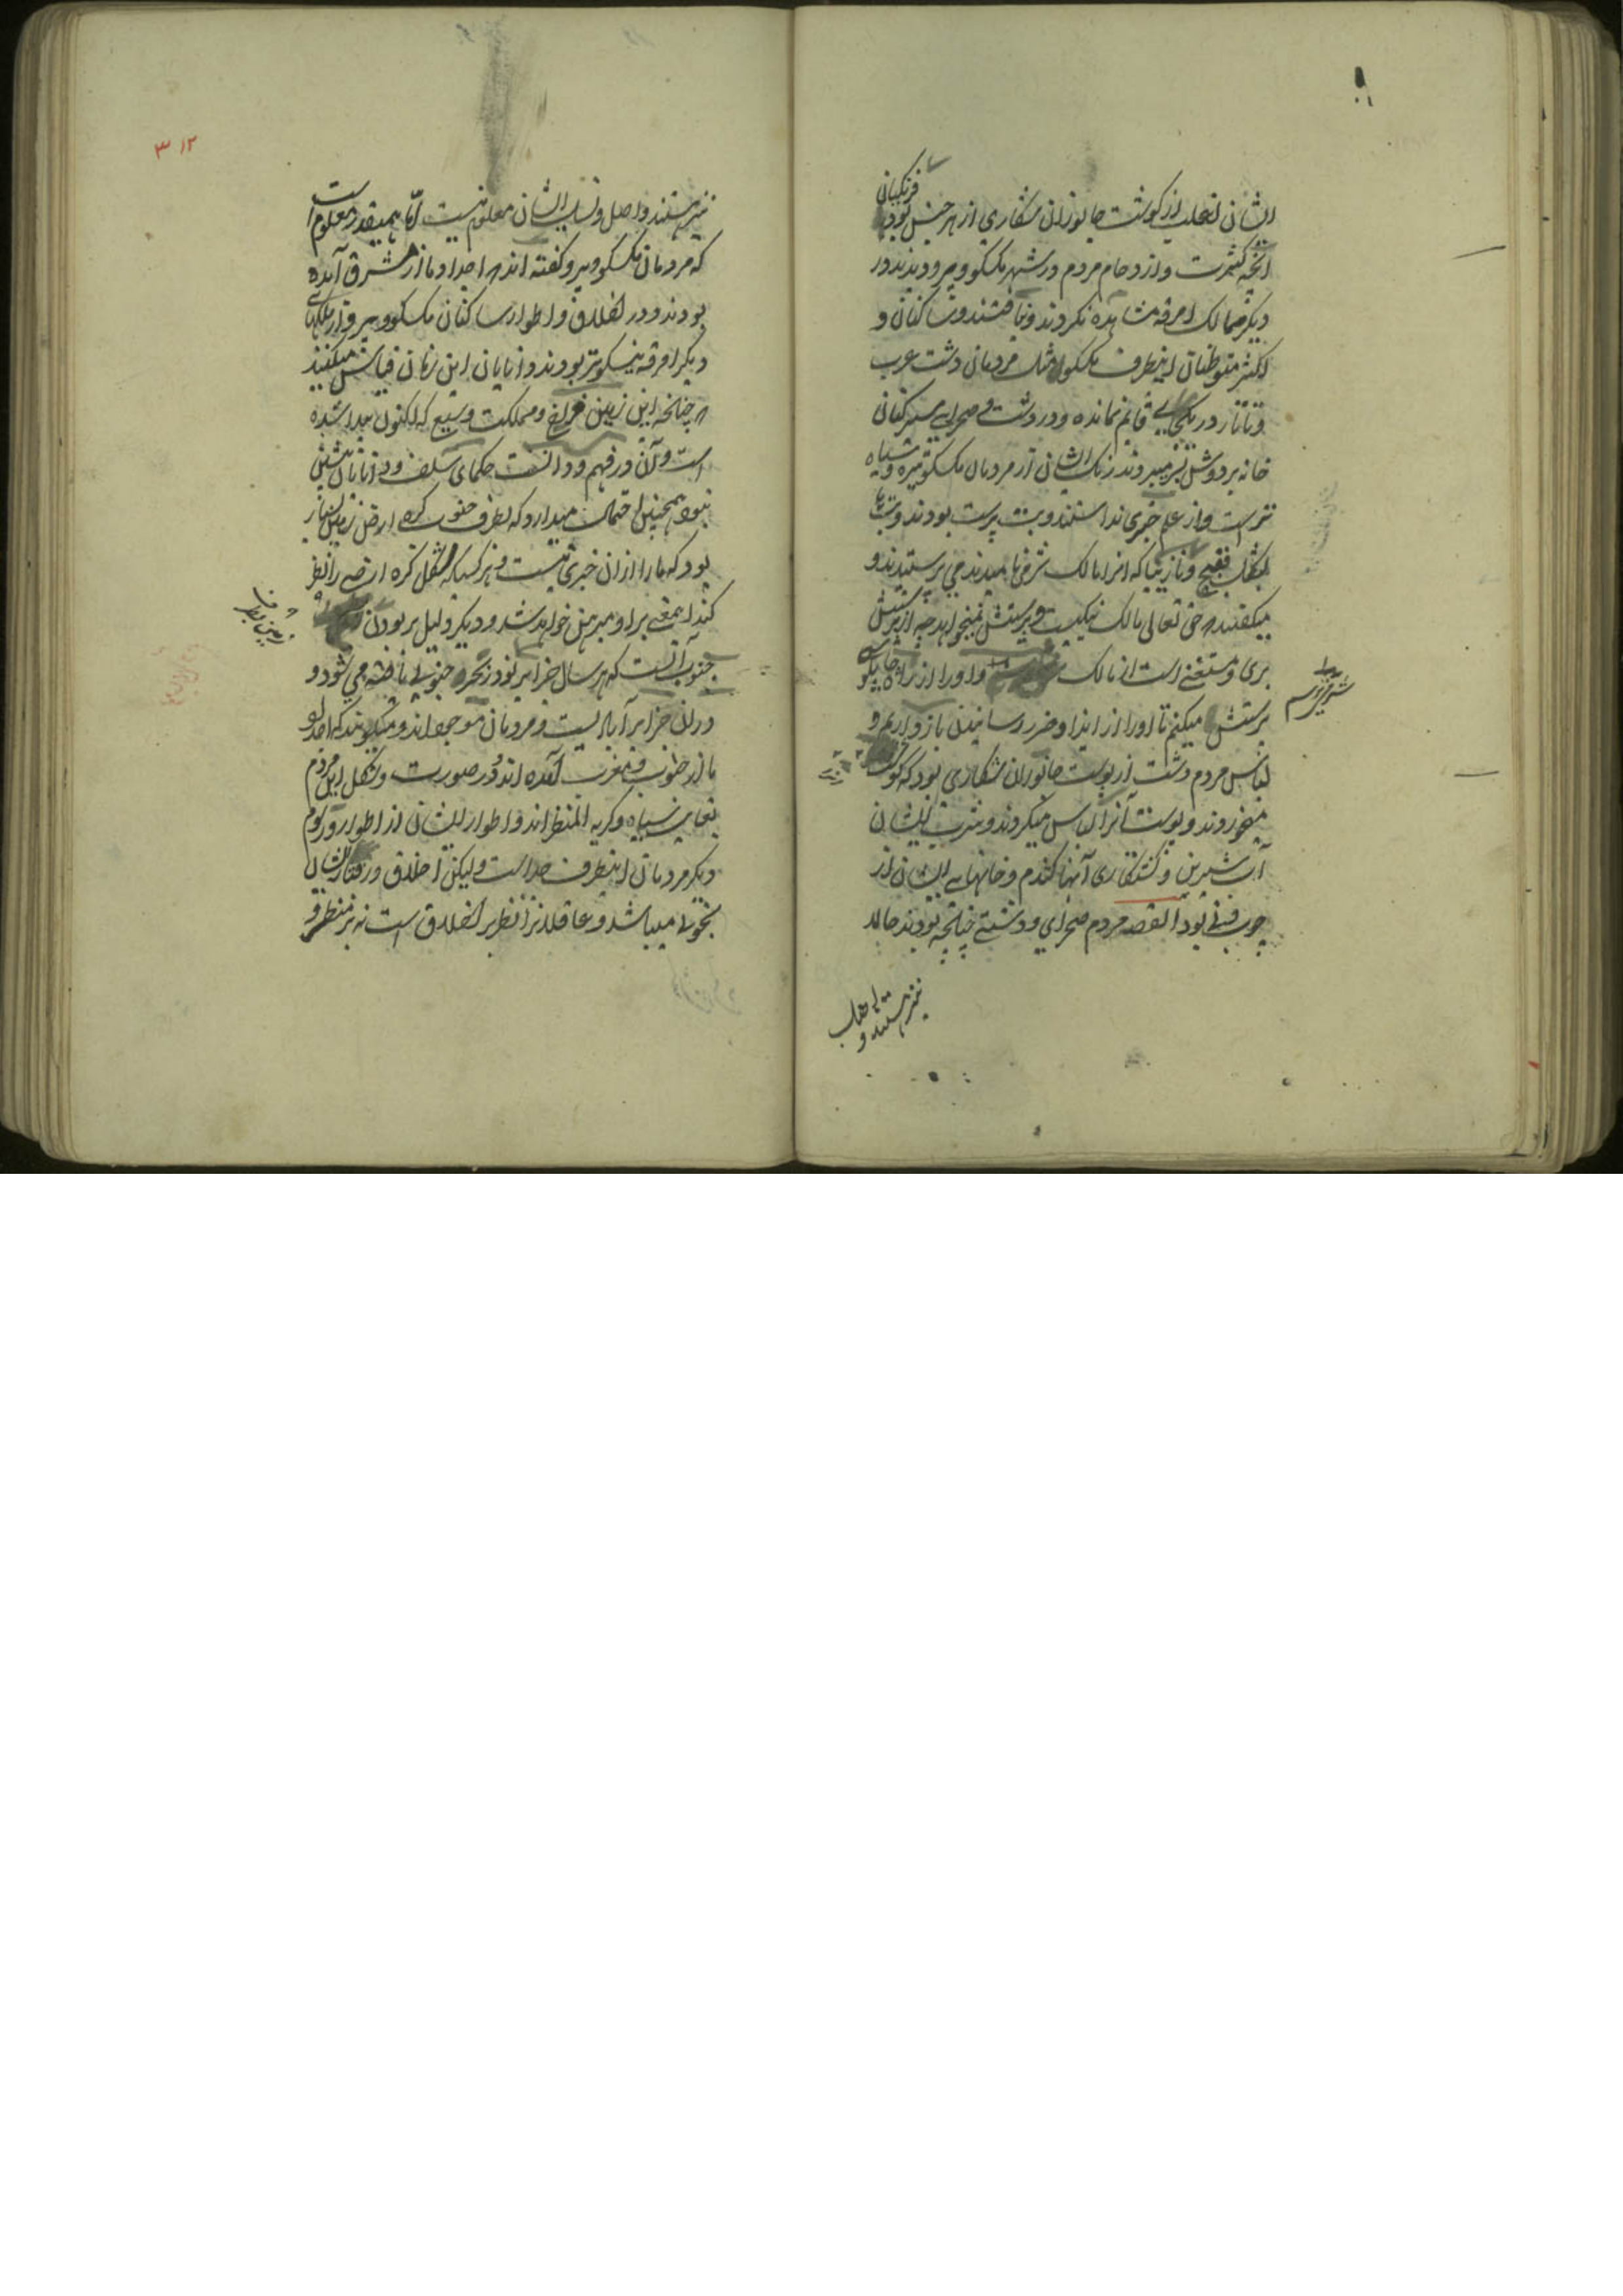 ایشان تعلب از کوشت جانوران شکاری از هر جنس بود فرنکیان
انچه کثرت و ازدحام مردم در شهر مکسکو و پیرو دیدند در
دیکر ممالک امرقه مشاهده نکردند و نیافتند و ساکنان و
اکثر متوطنان اینطرف مکسکو مثل مردمان دشت عرب
و تاتار در یکجای قائم نمانده و در دشت و صحرای سیرکنان
خانه بردوش بسر میبردند رنک ایشان از مردمان مکسکو تیره و سیاه
تر است و از علم خبری نداستند و بت پرست بودند و بت
بشکل قبیح و نازیبا که انرا مالک شر می نامیدند می پرستیدند و
میکفتند که حق تعالی مالک نیکیست و پرستش نمیخواهد چه از پرستش
بری و مستغنی است از مالک و او را از راه چاپلوسی
پرستش میکنم تا او را از ایذا و ضرر رسانیدن باز داریم و
لباس مردم دشت از پوست جانوران شکاری بود که کوشت
میخوردند و پوست آنرا لباس میکردند و شرب ایشان
آب شیرین و کشتکاری آنها کندم و خانهای ایشان از
چوب و نی بود القصه مردم صحرای و دشتی چنانچه بودند حالا
نیز هستند و
نیز هستند و اصل و نسب ایشان معلوم نیست امّا همینقدر معلوم است
که مردمان مکسکو و پیرو کفته اند که اجداد ما از مشرق آمده
بودند و در اخلاق و اطوار ساکنان مکسکو و پیرو از ملکهای
دیکر امرقه نیکوتر بودند و دانایان این زمان قیاس میکنند
که چنانچه این زمین فراخ و مملکت وسیع که اکنون پیدا شده
است و آن در فهم و دانست حکمای سلف و دانایان پیشین
نبود همچنین احتمال میدارد که بطرف جنوب کره ارض زمین بسیار
بود که ما را ازان خبری نیست و هر کسیکه شکل کره ارضی را نظر
کند اینمعنی بر او مبرهن خواهد شد و دیکر دلیل بر بودن
زمین بطرف
جنوب آنست که هر سال جزایر نو در بحره جنوبی یافته می شود و
در ان جزایر آبادیست و مردمان موجود اند و میکویند که اجداد
ما از جنوب و مغرب آمده اند و در صورت و شکل این مردم
بغایت سیاه و کریه المنظر اند و اطوار ایشان از اطوار و رسوم
دیکر مردمان اینطرف جداست و لیکن اخلاق و رفتار ایشان
بخوبی میباشد و عاقلانرا نظر بر اخلاق است نه بر منظر و
۳۱۲